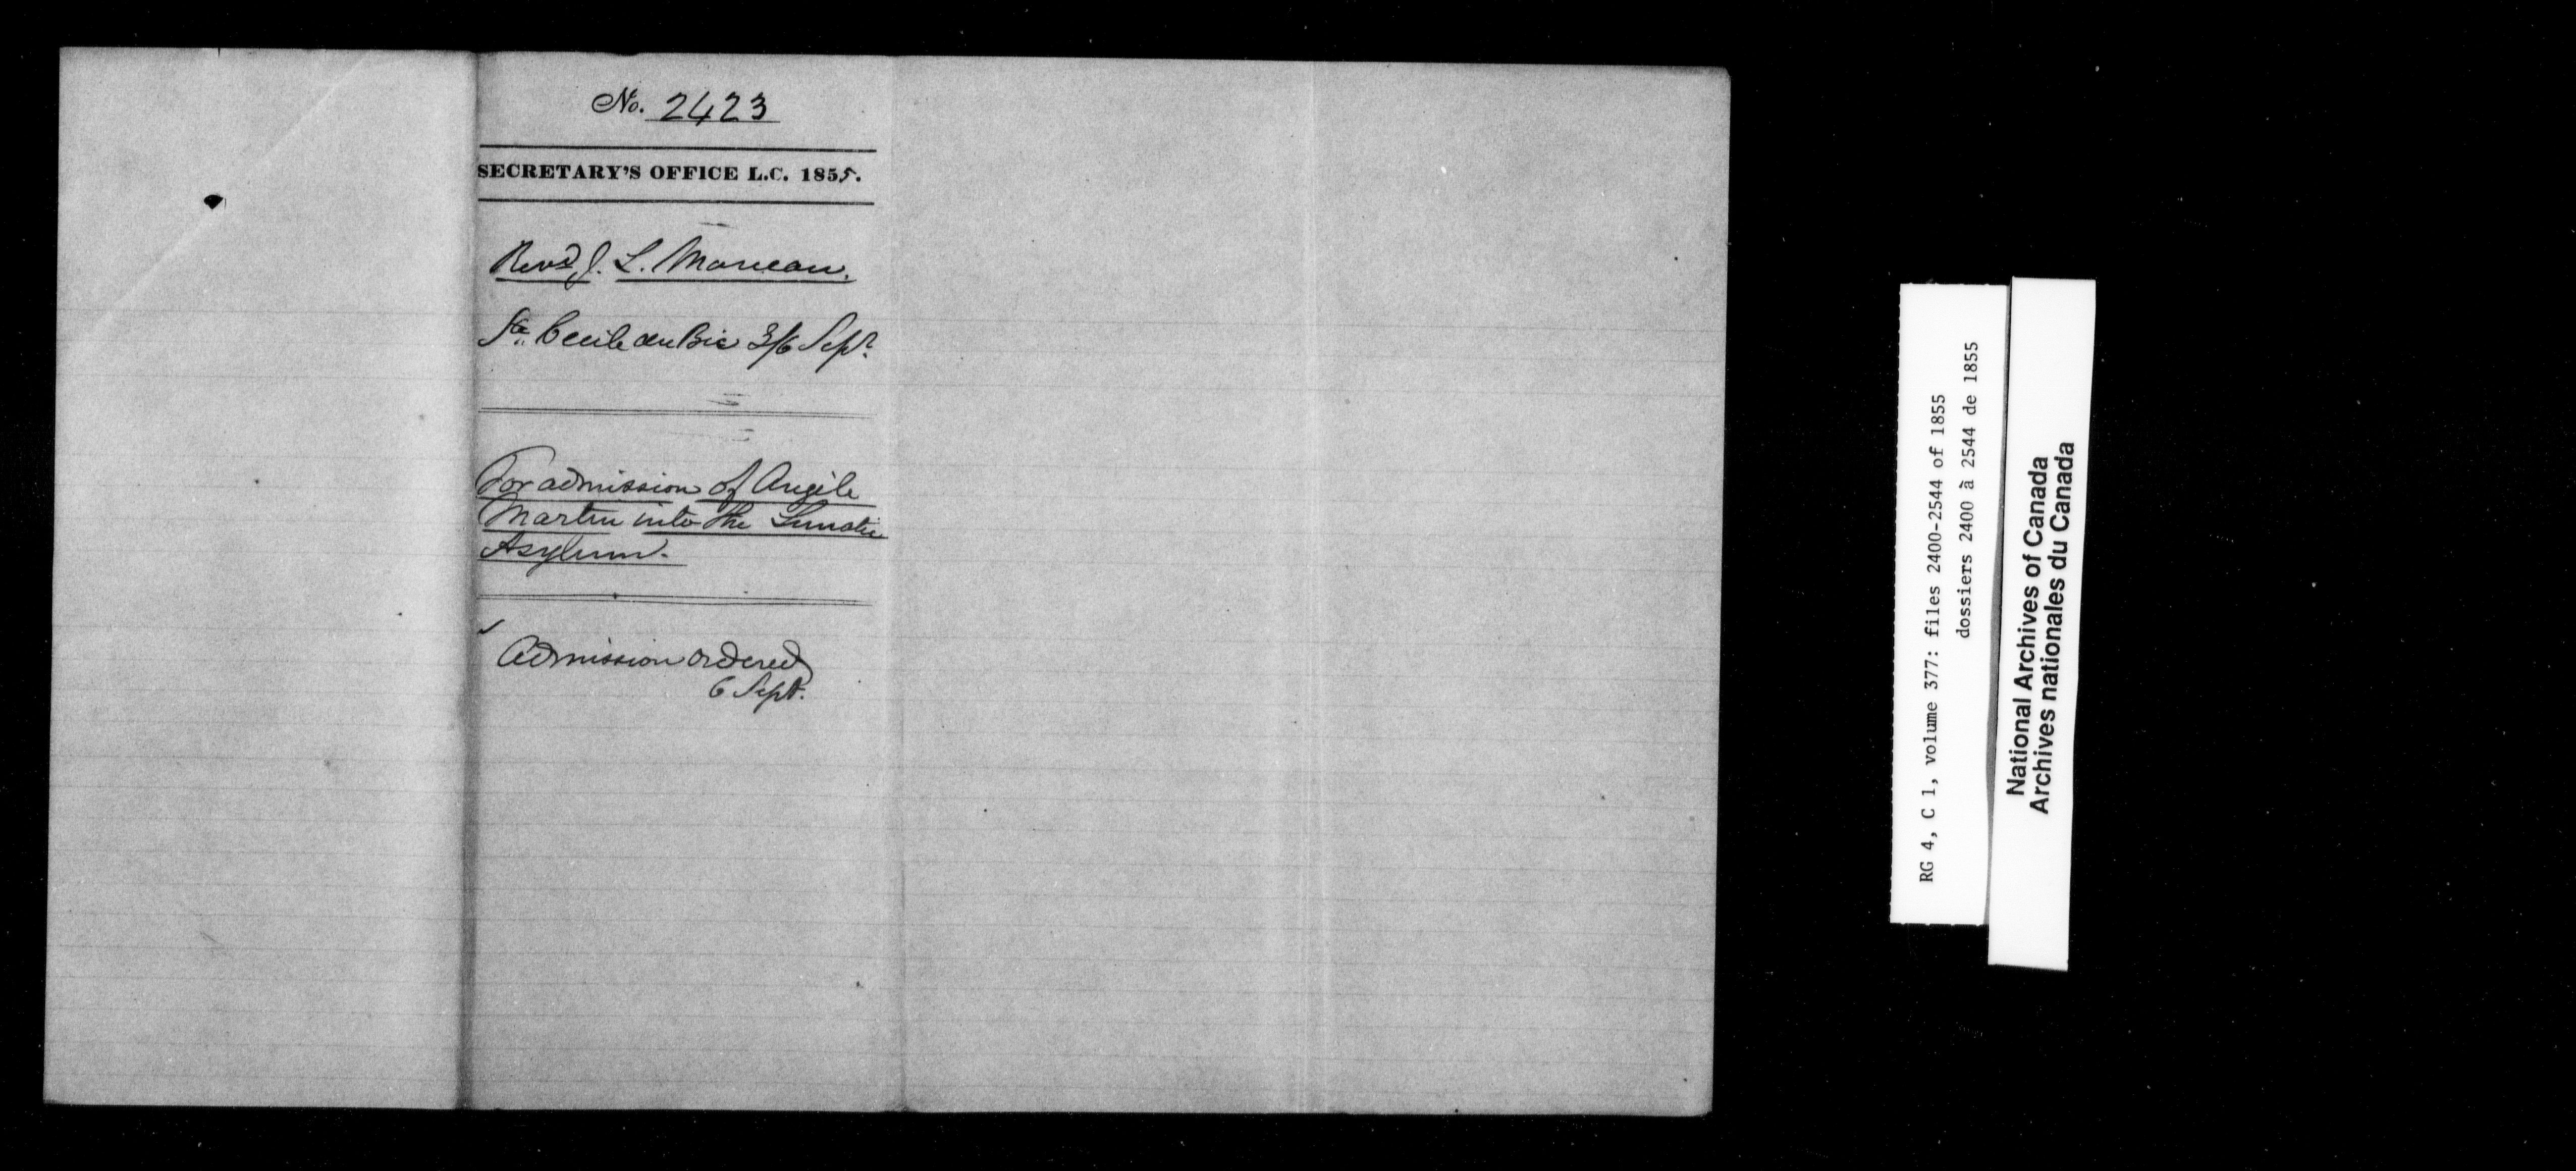 No. 2423
SECRETARY'S OFFICE L.C. 1855.
Revd J. L. Moreau.
Ste Cecile du Bic 3/6 Sept.
For admission of Angèle
Martin into the Lunatic
Asylum.
Admission ordered
6 Sept.
RG 4, C 1, volume 377: files 2400-2544 of 1855
dossiers 2400 à 2544 de 1855
National Archives of Canada
Archives nationales du Canada